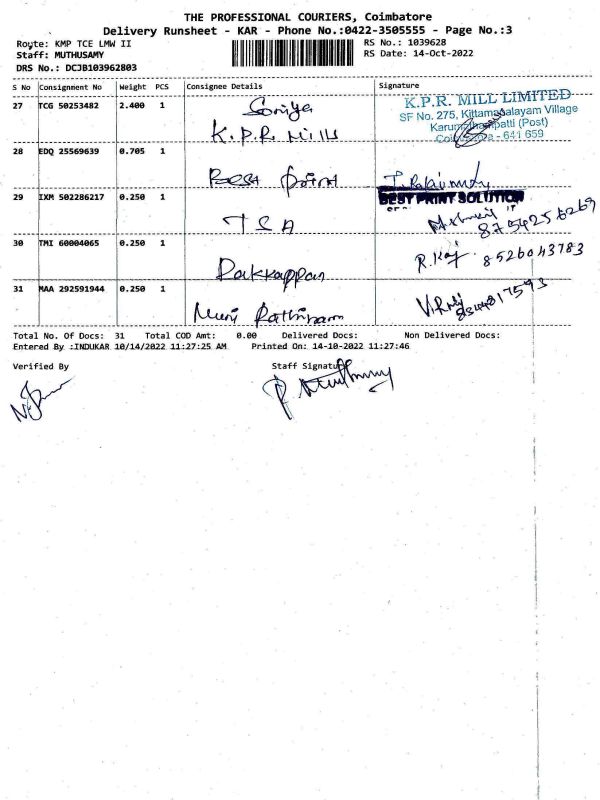 THE PROFESSIONAL COURIERS, Coimbatore
Delivery Runsheet - KAR - Phone No.:0422-3505555 - Page No.:3
Route: KMP TCE LMW II RS No.: 1039628
Staff: MUTHUSAMY RS Date: 14-Oct-2022
DRS No.: DCJB103962803
S No Consignment No Weight PCS Consignee Details Signature
27 TCG 50253482 2.400 1
K.P.R Mills
K.P.R. MILL LIMITED
SF No. 275, Kittampalayam Village
Karumathampatti (Post)
Coimbatore - 641 659
28 EDQ 25569639 0.705 1
Best Print
BEST PRINT SOLUTION
29 IXM 502286217 0.250 1
T S A
8754256269
30 TMI 60004065 0.250 1
R.Raj 8526043783
31 MAA 292591944 0.250 1
Muni Rathinam
Total No. Of Docs: 31 Total COD Amt: 0.00 Delivered Docs: Non Delivered Docs:
Entered By :INDUKAR 10/14/2022 11:27:25 AM Printed On: 14-10-2022 11:27:46
Verified By Staff Signature